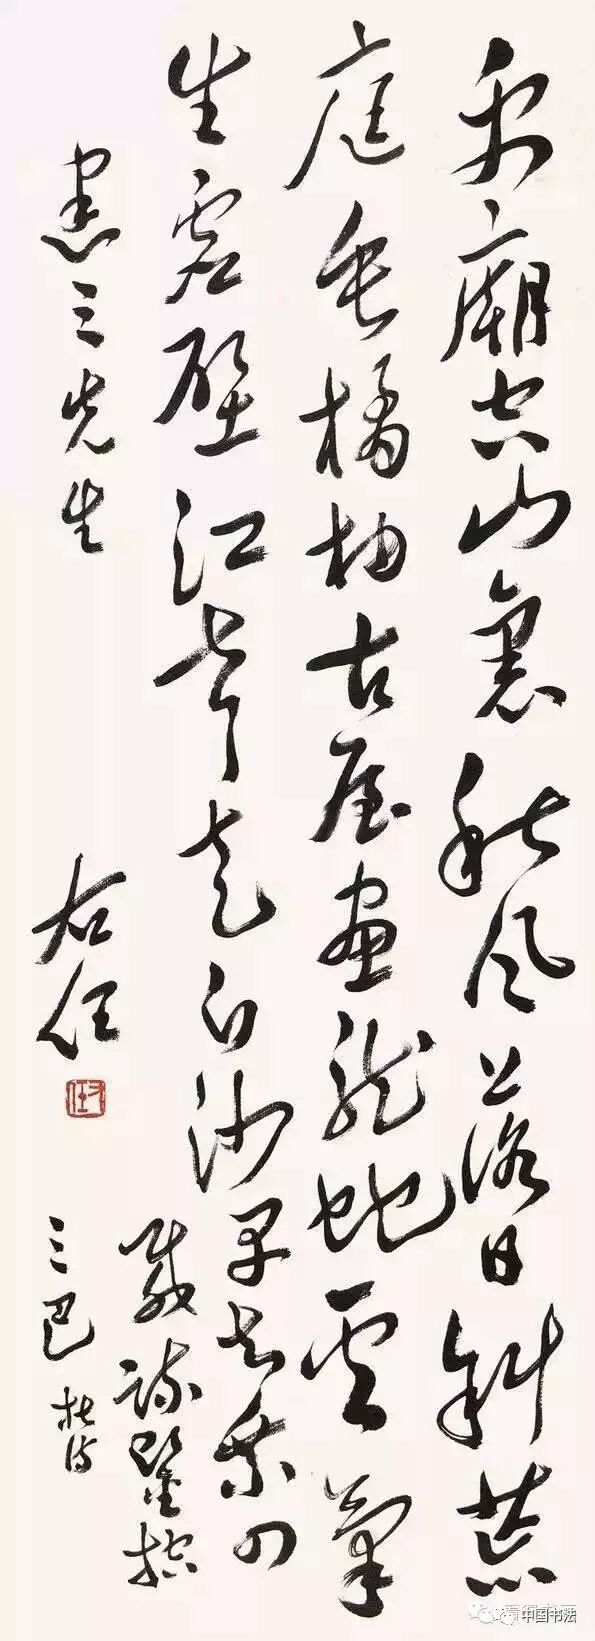 禹廟空山裏秋風落日斜荒
庭垂橘柚古屋畫龍蛇雲氣
生虛壁江聲走白沙早知乘四
載疏鑿控
三巴 杜詩
憲三先生
右任
右任
中国书法